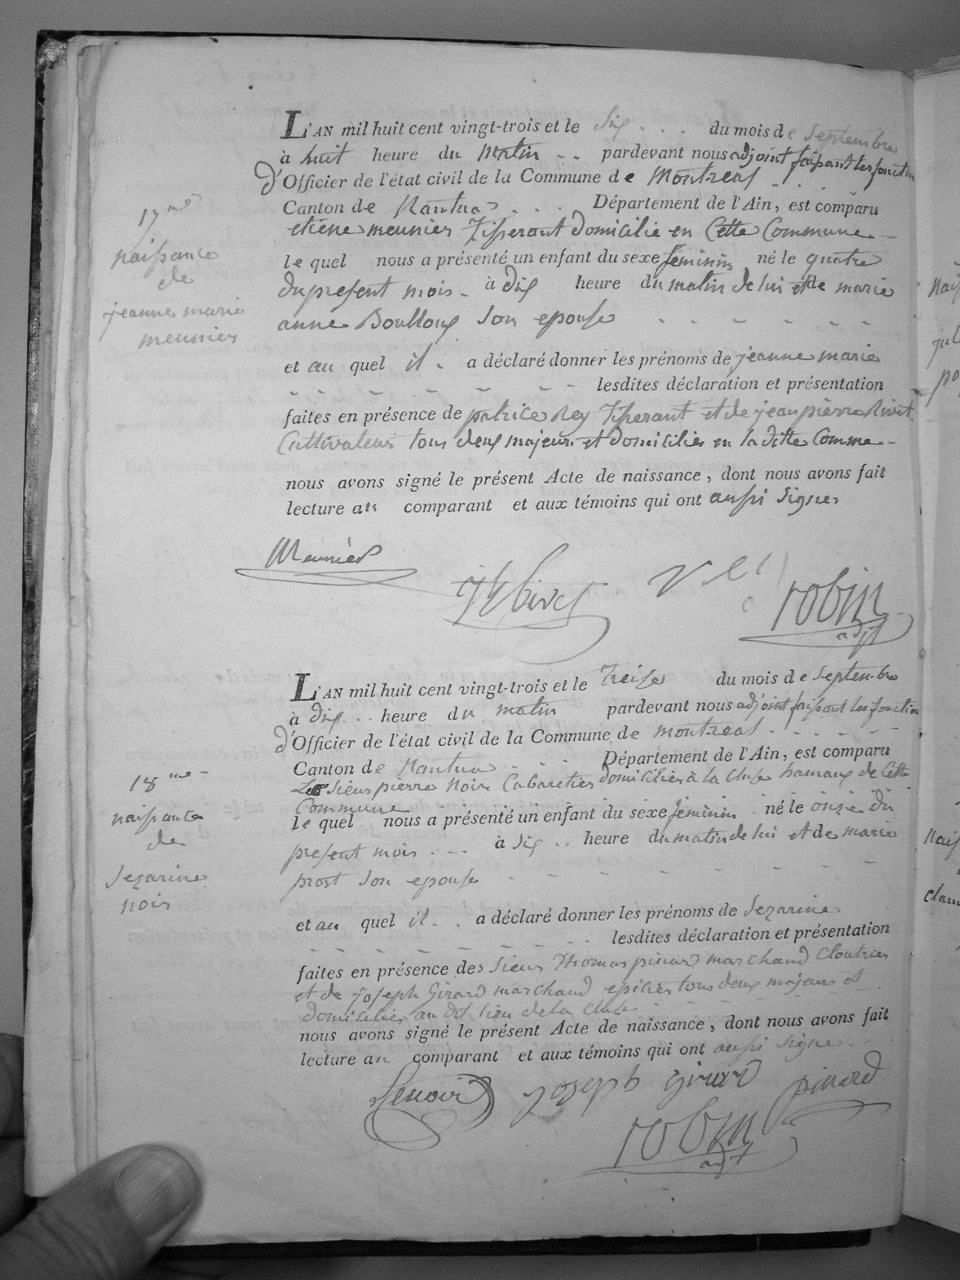 L'AN mil huit cent vingt-trois et le Six . . . du mois de Septembre
à huit heure du Matin . . pardevant nous adjoint faisant les fonction
d'Officier de l'état civil de la Commune de Montreal . . . .
Canton de Nantua . . . . Département de l'Ain, est comparu
etiene meunier Tisserant domicilié en Cette Commune -
le quel nous a présenté un enfant du sexe feminin né le quatre
du present mois - à dix heure du matin de lui et de marie
anne Boulloux son epouse
et au quel il - a déclaré donner les prénoms de jeanne marie
lesdites déclaration et présentation
faites en présence de patrice Rey Tisserant et de jean pierre Rivet
Cultivateur tous deux majeurs et domiciliés en la ditte Comme -
nous avons signé le présent Acte de naissance, dont nous avons fait
lecture au comparant et aux témoins qui ont aussi signes
17me
naissance
de
jeanne marie
meunier
Meunier
Rivet
robin
adjt
L'AN mil huit cent vingt-trois et le Treise du mois de Septembre
à dix . . heure du matin pardevant nous adjoint faisant les fonction
d'Officier de l'état civil de la Commune de montreal . . . . .
Canton de Nantua . . . . Département de l'Ain, est comparu
Le Sieur pierre Noir Cabaretier domicilié à la Cluse hamaux de Cette
Commune
le quel nous a présenté un enfant du sexe feminin né le onze du
present mois . . . à Six . . heure du matin de lui et de marie
prost Son epouse
et au quel il . . a déclaré donner les prénoms de Sezarine
lesdites déclaration et présentation
faites en présence des Sieur Thomas pinard marchand Cloutier
et de Joseph Girard marchand epicier tous deux majeurs et
domiciliés au dit lieu de la Cluse
nous avons signé le présent Acte de naissance, dont nous avons fait
lecture au comparant et aux témoins qui ont aussi signe
18me
naissance
de
Sezarine
noir
Lenoir
Joseph Girard
pinard
robin
adjt